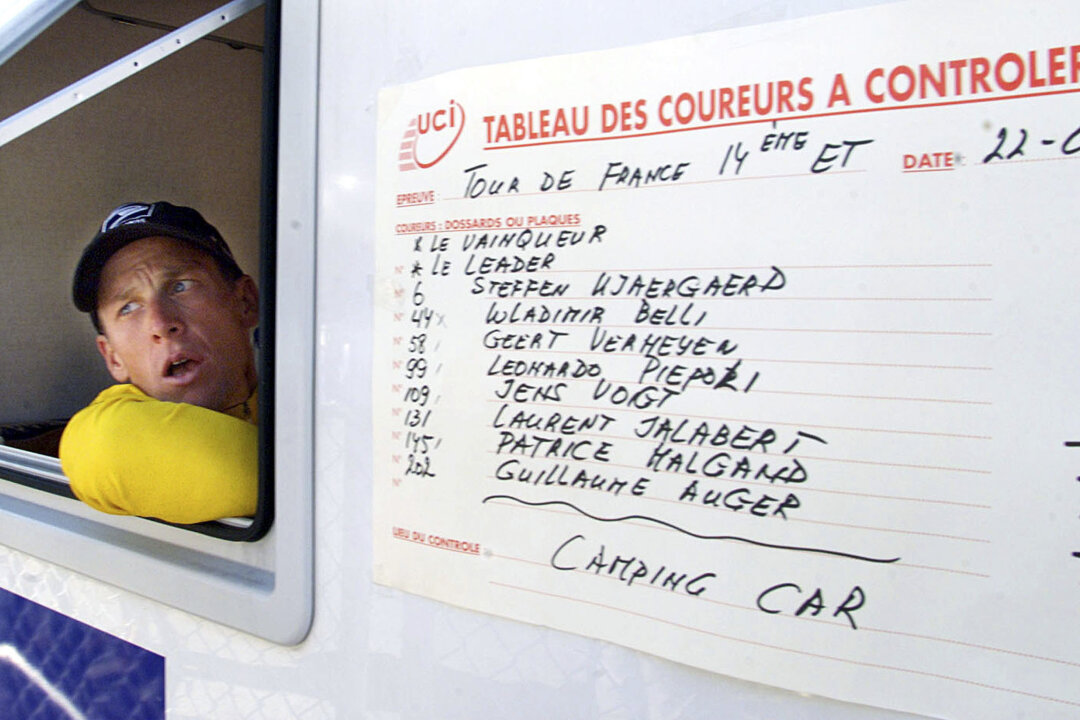 UCI
TABLEAU DES COUREURS A CONTROLER
EPREUVE: TOUR DE FRANCE 14 ÈME ET DATE: 22-0
COUREURS : DOSSARDS OU PLAQUES
* LE VAINQUEUR
N° * LE LEADER
N° 6 STEFFEN KJAERGAERD
N° 44 WLADIMIR BELLI
N° 58 GEERT VERHEYEN
N° 99 LEONARDO PIEPOLI
N° 109 JENS VOIGT
N° 131 LAURENT JALABERT
N° 145 PATRICE HALGAND
N° 202 GUILLAUME AUGER
N°
LIEU DU CONTROLE
CAMPING CAR